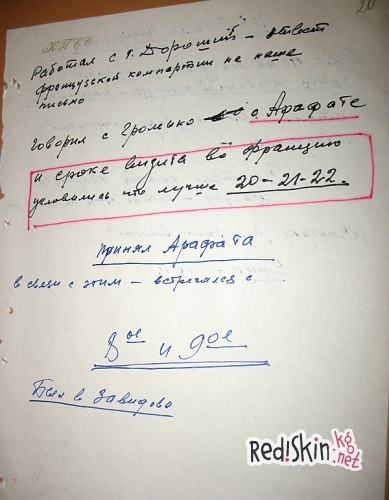 20
КПСС
Работал с т. Дороший – ответ
французской компартии на наше
письмо
Говорил с Громыко о Арафате
и сроке визита во Францию
условились что лучше 20-21-22.
принял Арафата
в связи с этим – встречался с
8ое и 9ое
Был в Завидово
Red!Skin.kg
.net